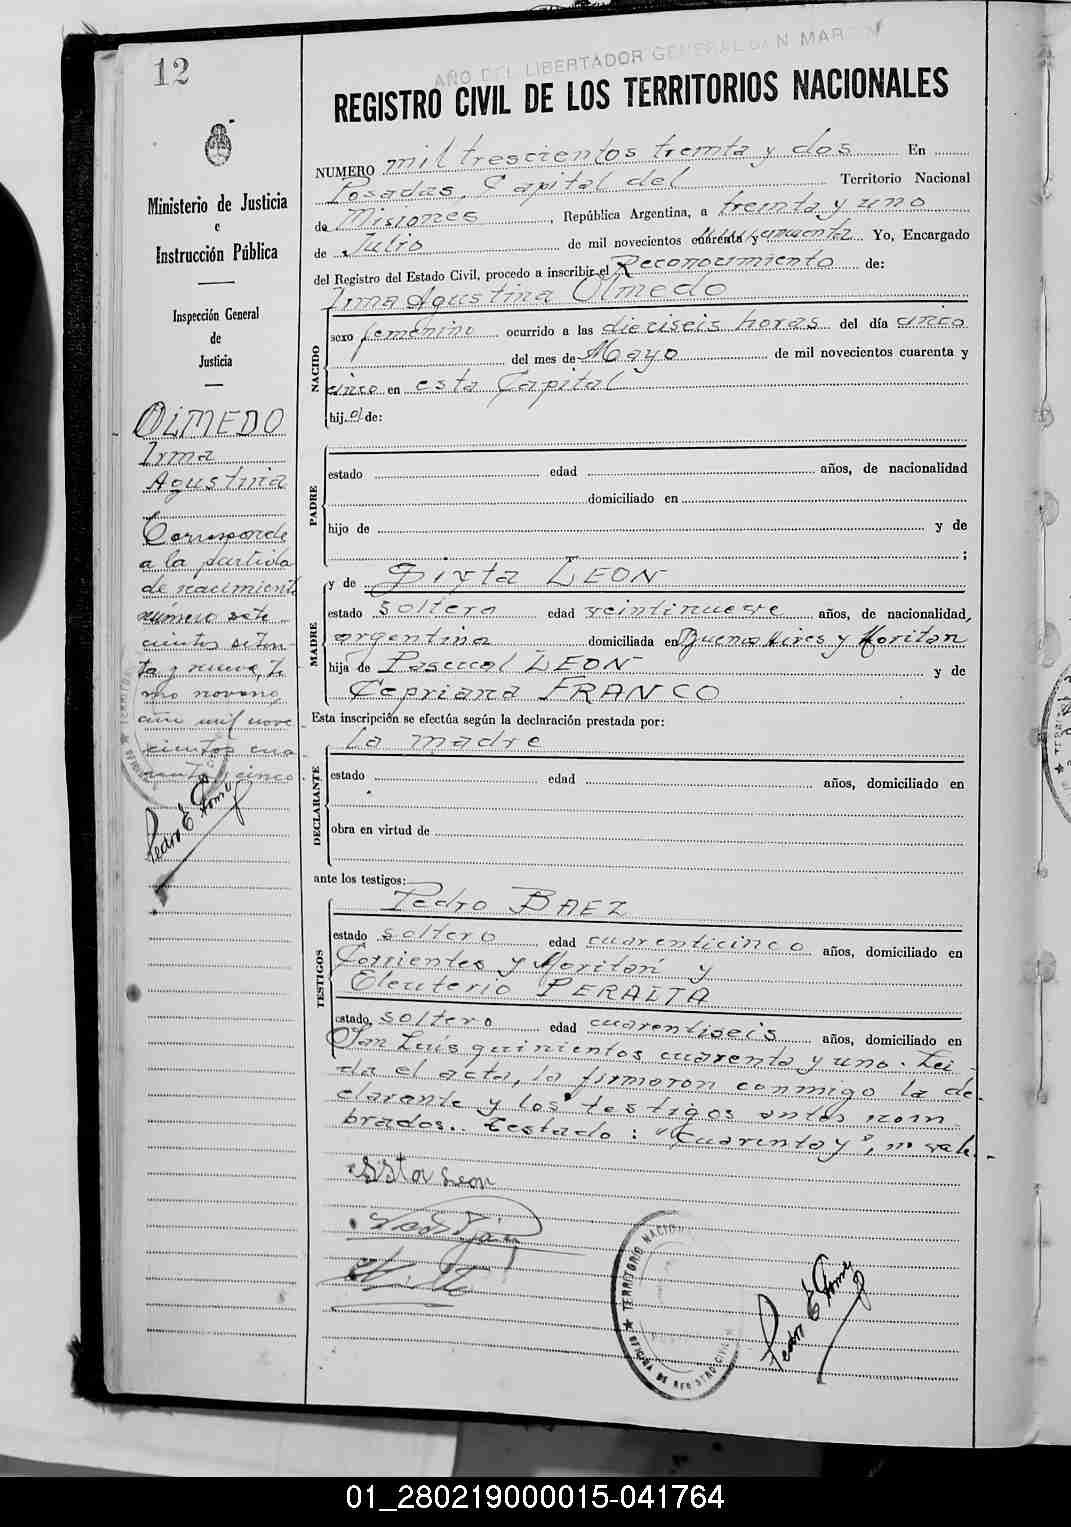 12
AÑO DEL LIBERTADOR GENERAL SAN MARTIN
REGISTRO CIVIL DE LOS TERRITORIOS NACIONALES
Ministerio de Justicia
e
Instrucción Pública
Inspección General
de
Justicia
OLMEDO
Irma
Agustina
Corresponde
a la partida
de nacimiento
número sete
cientos seten
ta y nueve, To
mo noveno,
año mil nove
cientos cua
renta y cinco
Pedro E Gomez
NUMERO mil trescientos treinta y dos En
Posadas, Capital del Territorio Nacional
de Misiones, República Argentina, a treinta y uno
de Julio de mil novecientos cuarenta y cincuenta Yo, Encargado
del Registro del Estado Civil, procedo a inscribir el Reconocimiento de:
Irma Agustina Olmedo
NACIDO
sexo femenino ocurrido a las dieciseis horas del día cinco
del mes de Mayo de mil novecientos cuarenta y
cinco en esta Capital
hij a de:
PADRE
estado edad años, de nacionalidad
domiciliado en
hijo de y de
;
MADRE
y de Sixta LEON
estado soltera edad veintinueve años, de nacionalidad,
argentina domiciliada en Buenos Aires y Moritán
hija de Pascual LEON y de
Cepriana FRANCO
Esta inscripción se efectúa según la declaración prestada por:
La madre
DECLARANTE
estado edad años, domiciliado en
obra en virtud de
ante los testigos:
TESTIGOS
Pedro BAEZ
estado soltero edad cuarenticinco años, domiciliado en
Corrientes y Moritán y
Eleuterio PERALTA
estado soltero edad cuarentiseis años, domiciliado en
San Luis quinientos cuarenta y uno. Lei
da el acta, la firmaron conmigo la de-
clarante y los testigos antes nom
brados.. Testado: "cuarenta y", no vale.-
Leon
TERRITORIO NACIO
OFICINA DE REGISTRO CIVIL
Pedro E Gomez
01_280219000015-041764